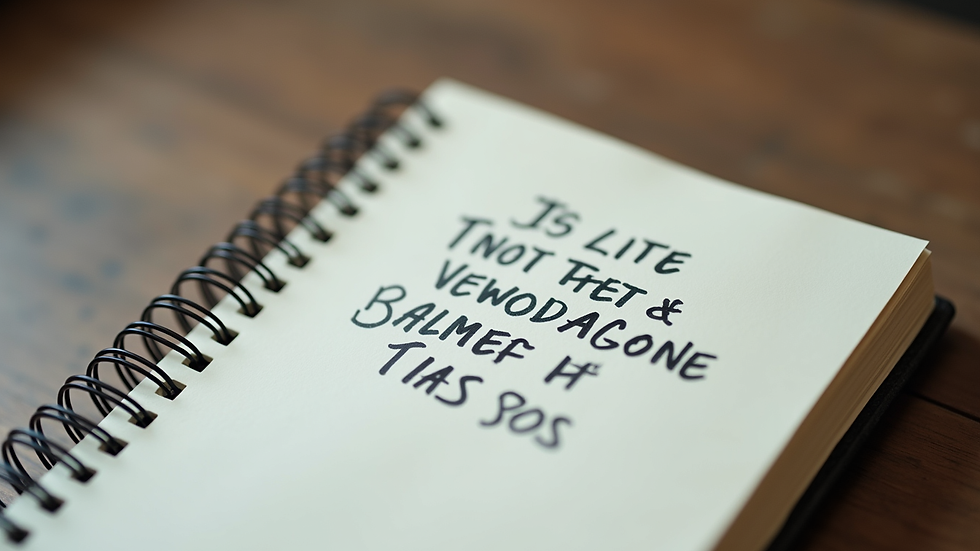 JS LITE
TNOT TFET &
VEWODAGONE
BALMEF H
TIAS SOS